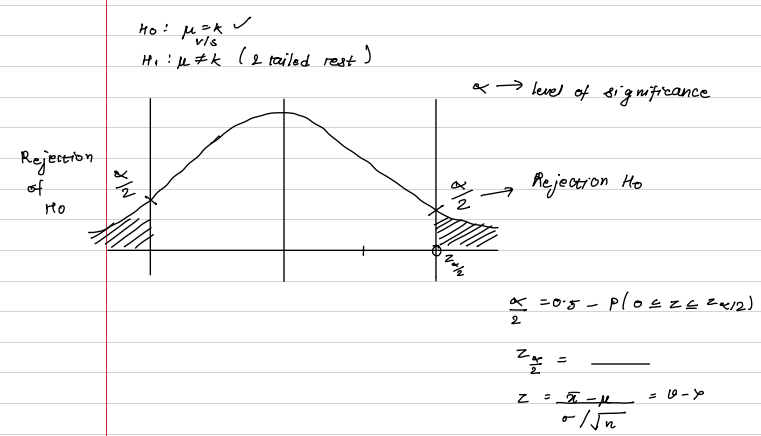 H0 : μ = k ✓
v/s
H1 : μ ≠ k (2 tailed rest)
α → level of significance
Rejection
of
H0
α/2
α/2 → Rejection H0
zα/2
α/2 = 0.5 - P(0 ≤ z ≤ zα/2)
zα/2 = ____
z = x̄ - μ / σ/√n =